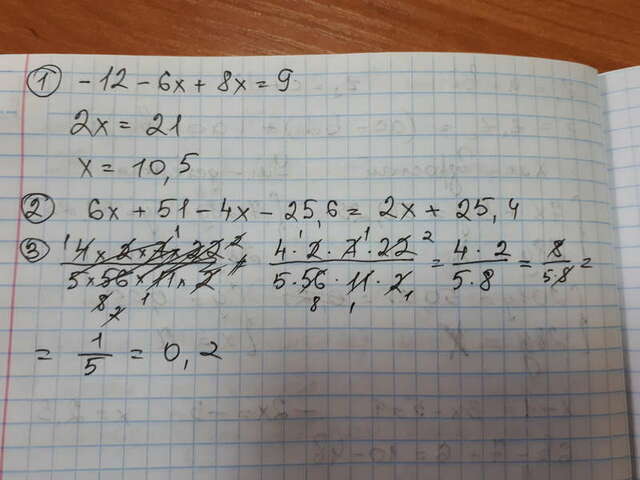 1 -12 - 6x + 8x = 9
2x = 21
x = 10,5
2 6x + 51 - 4x - 25,6 = 2x + 25,4
3 4 · 2 · 7 · 22 / 5 · 56 · 11 · 2 = 4 · 2 / 5 · 8 = 8 / 5 8 =
= 1/5 = 0,2